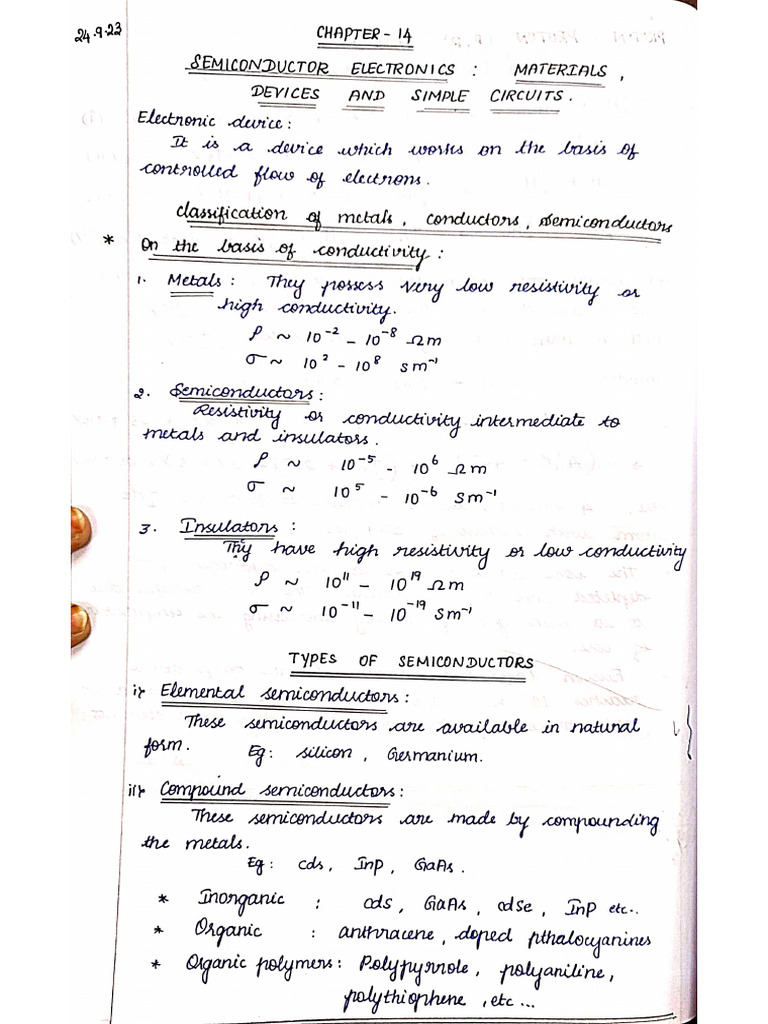 24.9.23
CHAPTER - 14
SEMICONDUCTOR ELECTRONICS : MATERIALS,
DEVICES AND SIMPLE CIRCUITS.
Electronic device:
It is a device which works on the basis of
controlled flow of electrons.
Classification of metals, conductors, Semiconductors
* On the basis of conductivity:
1. Metals : They possess very low resistivity or
high conductivity.
ρ ~ 10⁻² - 10⁻⁸ Ωm
σ ~ 10² - 10⁸ Sm⁻¹
2. Semiconductors:
Resistivity or conductivity intermediate to
metals and insulators.
ρ ~ 10⁻⁵ - 10⁶ Ωm
σ ~ 10⁵ - 10⁻⁶ Sm⁻¹
3. Insulators :
They have high resistivity or low conductivity
ρ ~ 10¹¹ - 10¹⁹ Ωm
σ ~ 10⁻¹¹ - 10⁻¹⁹ Sm⁻¹
TYPES OF SEMICONDUCTORS
i) Elemental semiconductors:
These semiconductors are available in natural
form. Eg: silicon, Germanium.
ii) Compound semiconductors:
These semiconductors are made by compounding
the metals.
Eg: cds, InP, GaAs.
* Inorganic : cds, GaAs, cdse, InP etc..
* Organic : anthracene, doped pthalocyanines
* Organic polymers: Polypyrrole, polyaniline,
polythiophene, etc...